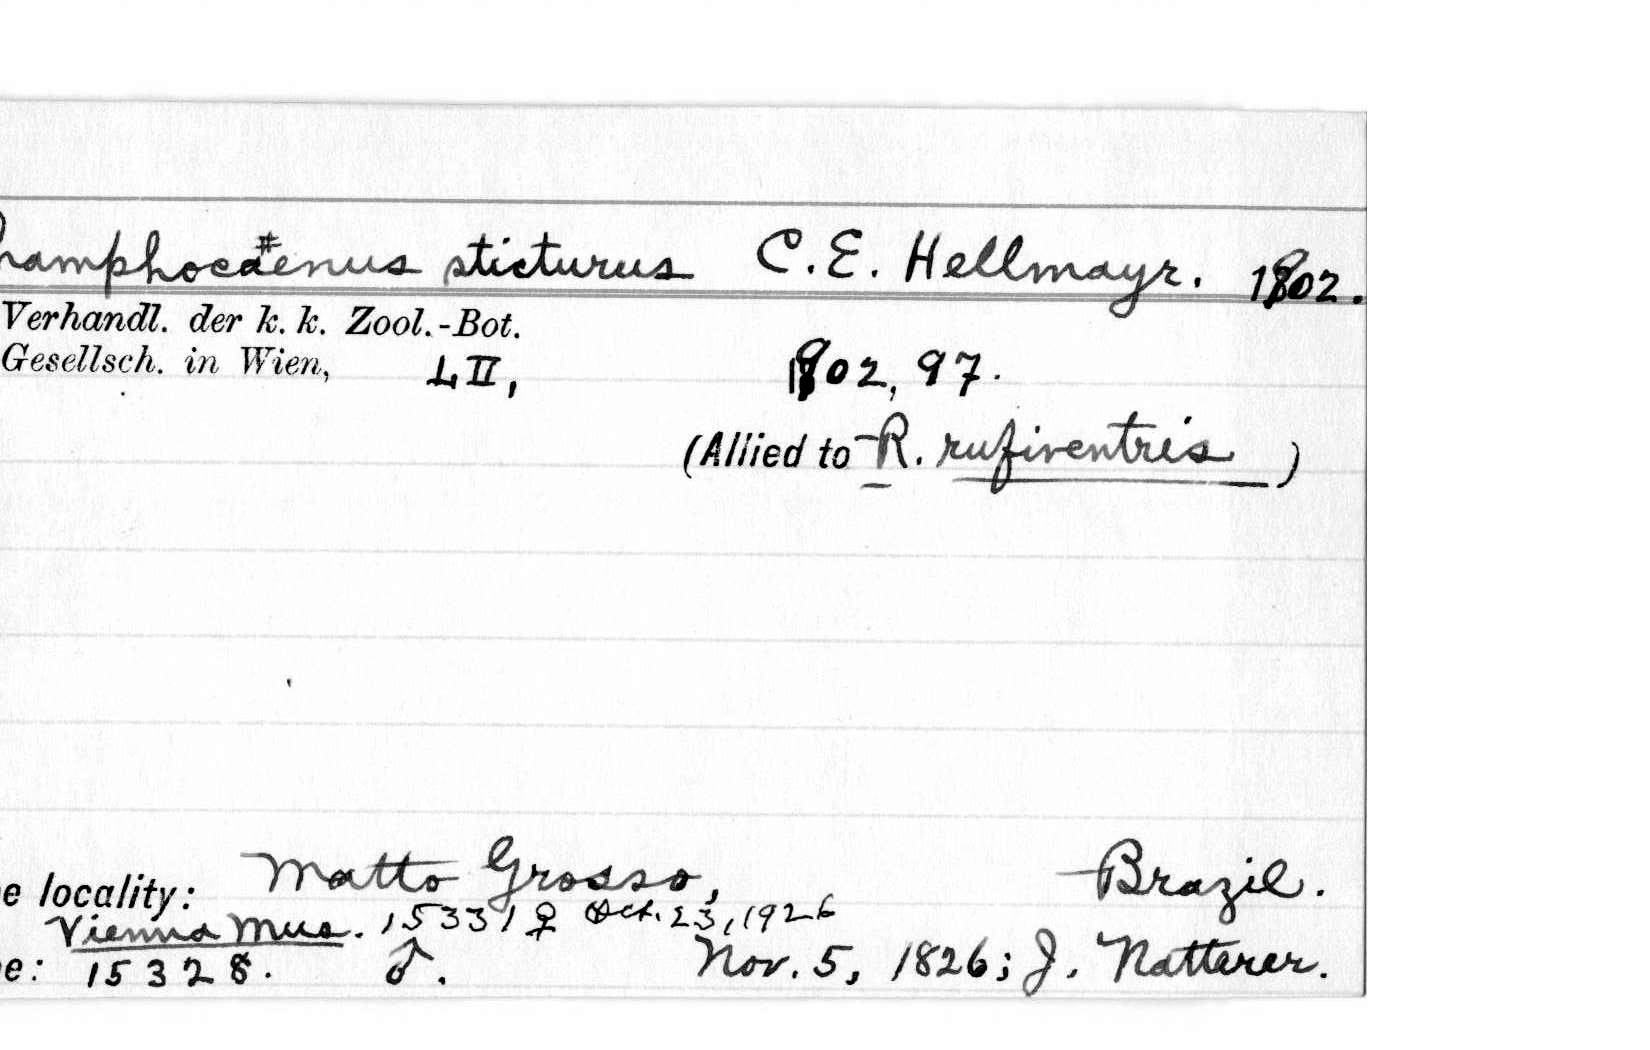 hamphocaenus sticturus C. E. Hellmayr. 1902.
Verhandl. der k. k. Zool.-Bot.
Gesellsch. in Wien, LII, 1902, 97.
(Allied to R. rufiventris)
e locality: Matto Grosso, Brazil.
Vienna Mus. 15331 ♀ Oct. 23, 1926
e: 15328. ♂. Nov. 5, 1826; J. Natterer.